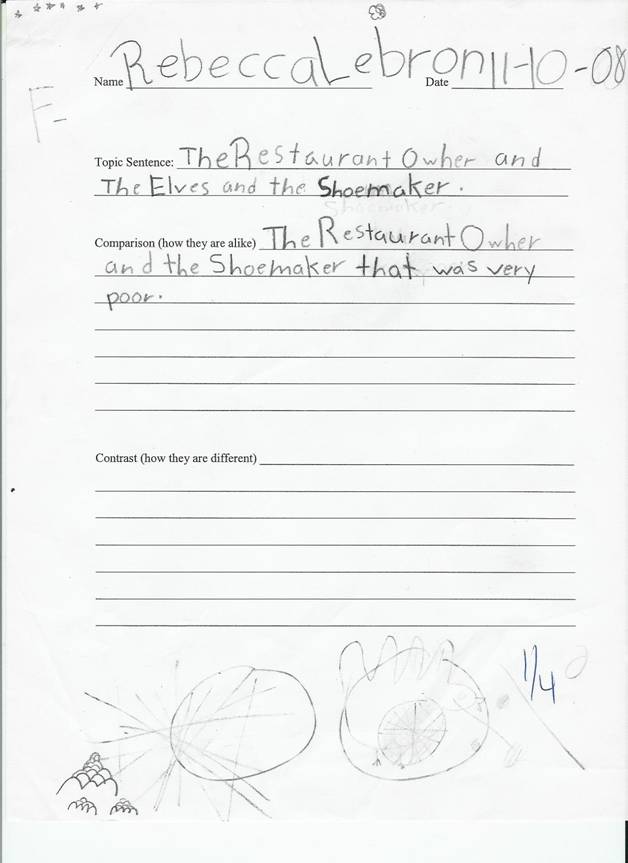 Name RebeccaLebron Date 11-10-08
F-
Topic Sentence: The Restaurant Owher and
The Elves and the Shoemaker.
Shoemaker.
Comparison (how they are alike) The Restaurant Owher
and the Shoemaker that was very
poor.
Contrast (how they are different)
1/4